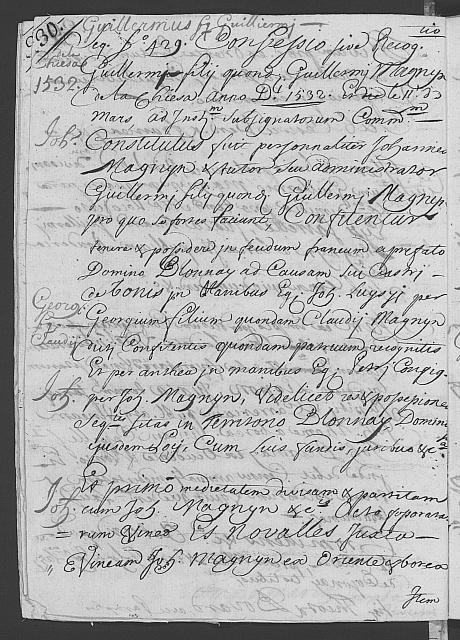 30. Guillermus fq Guillermj
Seq. fo 429. Confessio sive Recog.
Guillermj filij quond. Guillermj Magnyn
de la Chiesa Anno Dj. 1532. Et die 11a. de
1532
Mars, ad Instm subsignatorum Comm.m
Joh. Constitutus fuit personnaliter Johannes
Magnyn tutor seu administrator
Guillermj filij quondj Guillermj Magnyn
pro quo se fortes faciunt, Confitentur
tenere & possidere jn feudum francum a prefato
Domino Blonnay ad Causam sui Castri
de bonis jn Manibus Eq. Joh. per
Georg. fq Claudij
Georgium filium quondam Claudij Magnyn
Confitentis quondam patruum, recognitis
Et per anthea jn manibus Eq.
Joh. per Joh. Magnyn, Videlicet res & possessiones
Seq.tes sitas in Territorio Blonnay Dominj
ejusdem Loij. Cum suis fundis, juribus & ca.
Et primo medietatem divisam & partitam
Joh. cum Joh. Magnyn & ca. Octo
rum Vineae Es Novalles Juxta
Vineam Joh. Magnyn ex Oriente & borea
Item